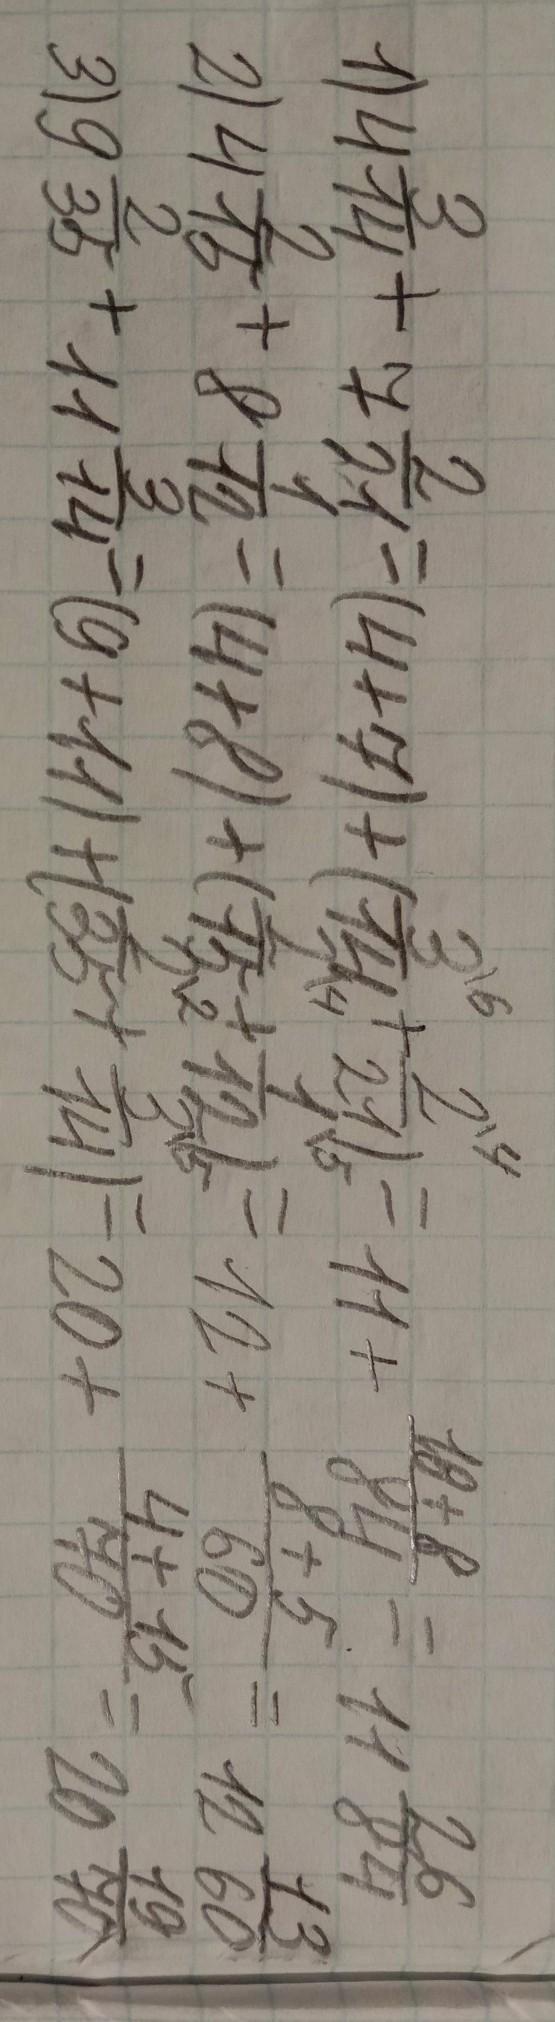 1) 4 3/14 + 7 2/21 = (4+7) + (3/14 \6 + 2/21 \4) = 11 + 18+8/84 = 11 26/84
2) 4 2/15 + 8 1/12 = (4+8) + (2/15 + 1/12 \5) = 12 + 8+5/60 = 12 13/60
3) 9 2/35 + 11 3/14 = (9+11) + (2/35 \2 + 3/14 \5) = 20 + 4+15/70 = 20 19/70